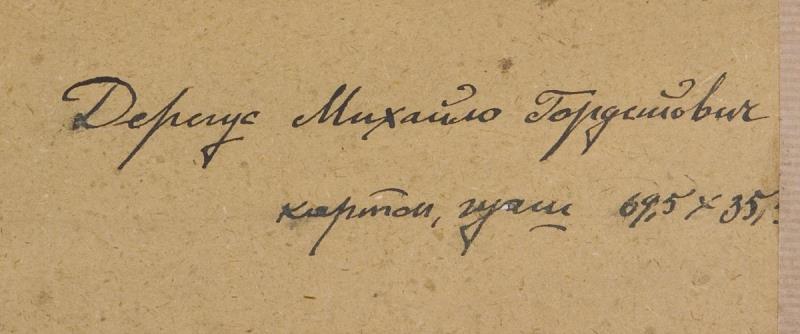 Дерегус Михайло Гордійович
картон, гуаш 69,5 x 35,